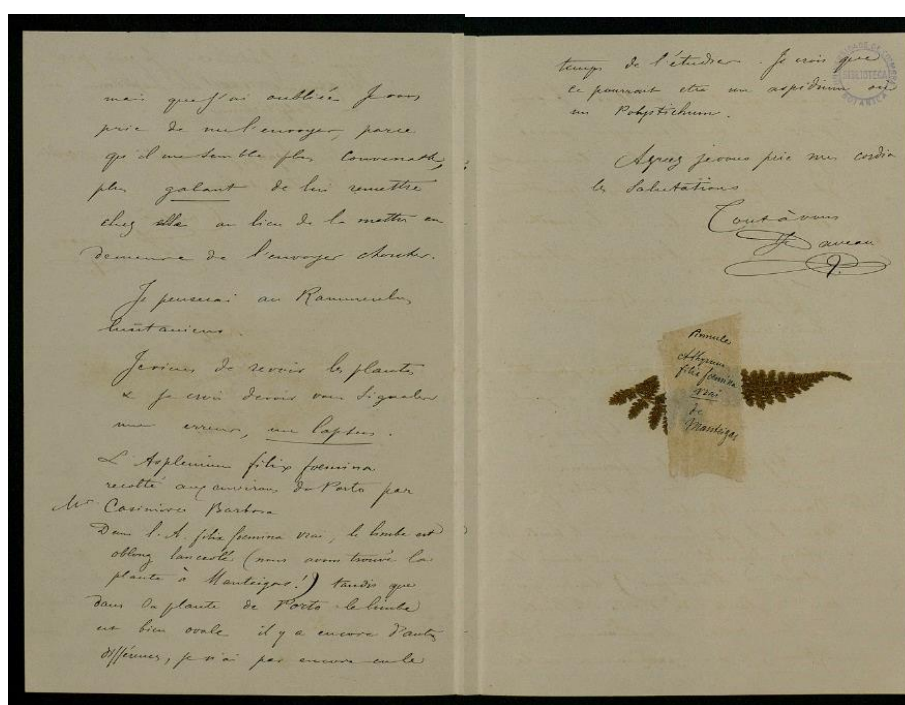 mais que j'ai oubliée Je vous
prie de me l'envoyer, parce
qu'il me semble plus convenable,
plus galant de lui remettre
chez elle au lieu de la mettre en
demeure de l'envoyer chercher.
Je penserai au Ranunculus
lusitanicus.
Je viens de revoir les plantes
& je crois devoir vous signaler
une erreur, un lapsus.
L'Asplenium filix foemina
recolté aux environs du Porto par
Mr Casimiro Barbosa
Dans l'A. filix foemina vrai, le limbe est
oblong lancéolé (nous avons trouvé la
plante à Manteigas!) tandis que
dans la plante de Porto le limbe
est bien ovale il y a encore d'autres
différences, je n'ai pas encore eu le
temps de l'étudier. Je crois que
ce pourrait etre un aspidium ou
un Polystichum.
Agréez je vous prie mes cordia
les Salutations
Tout à vous
J. Daveau
BIBLIOTECA
BOTANICA
Pinnules
Athyrium
filix foemina
vrai
de
Manteigas